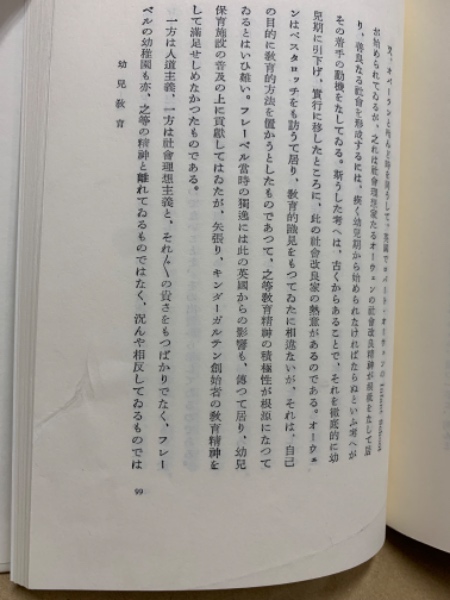 又、オベーランと殆んど時を同うして、英國でロバート・オーウェンの Infant School
が始められてゐるが、之れは社會理想家たるオーウェンの社會改良精神が根底をなして居
り、善良なる社會を形成するには、極く幼兒期から始められなければならぬといふ考へが
その着手の動機をなしてゐる。斯うした考へは、古くからあることで、それを徹底的に幼
兒期に引下げ、實行に移したところに、此の社會改良家の熱意があるのである。オーウェ
ンはペスタロッチをも訪うて居り、敎育的識見をもつてゐたに相違ないが、それは、自己
の目的に敎育的方法を置かうとしたものであつて、之等敎育精神の積極性が根源になつて
ゐるとはいひ難い。フレーベル當時の獨逸には此の英國からの影響も、傳つて居り、幼兒
保育施設の普及の上に貢獻してはゐたが、矢張り、キンダーガルテン創始者の敎育精神を
して滿足せしめなかつたものである。
一方は人道主義、一方は社會理想主義と、それ〴〵の貴さをもつばかりでなく、フレー
ベルの幼稚園も亦、之等の精神と離れてゐるものではなく、況んや相反してゐるものでは
幼兒敎育
99